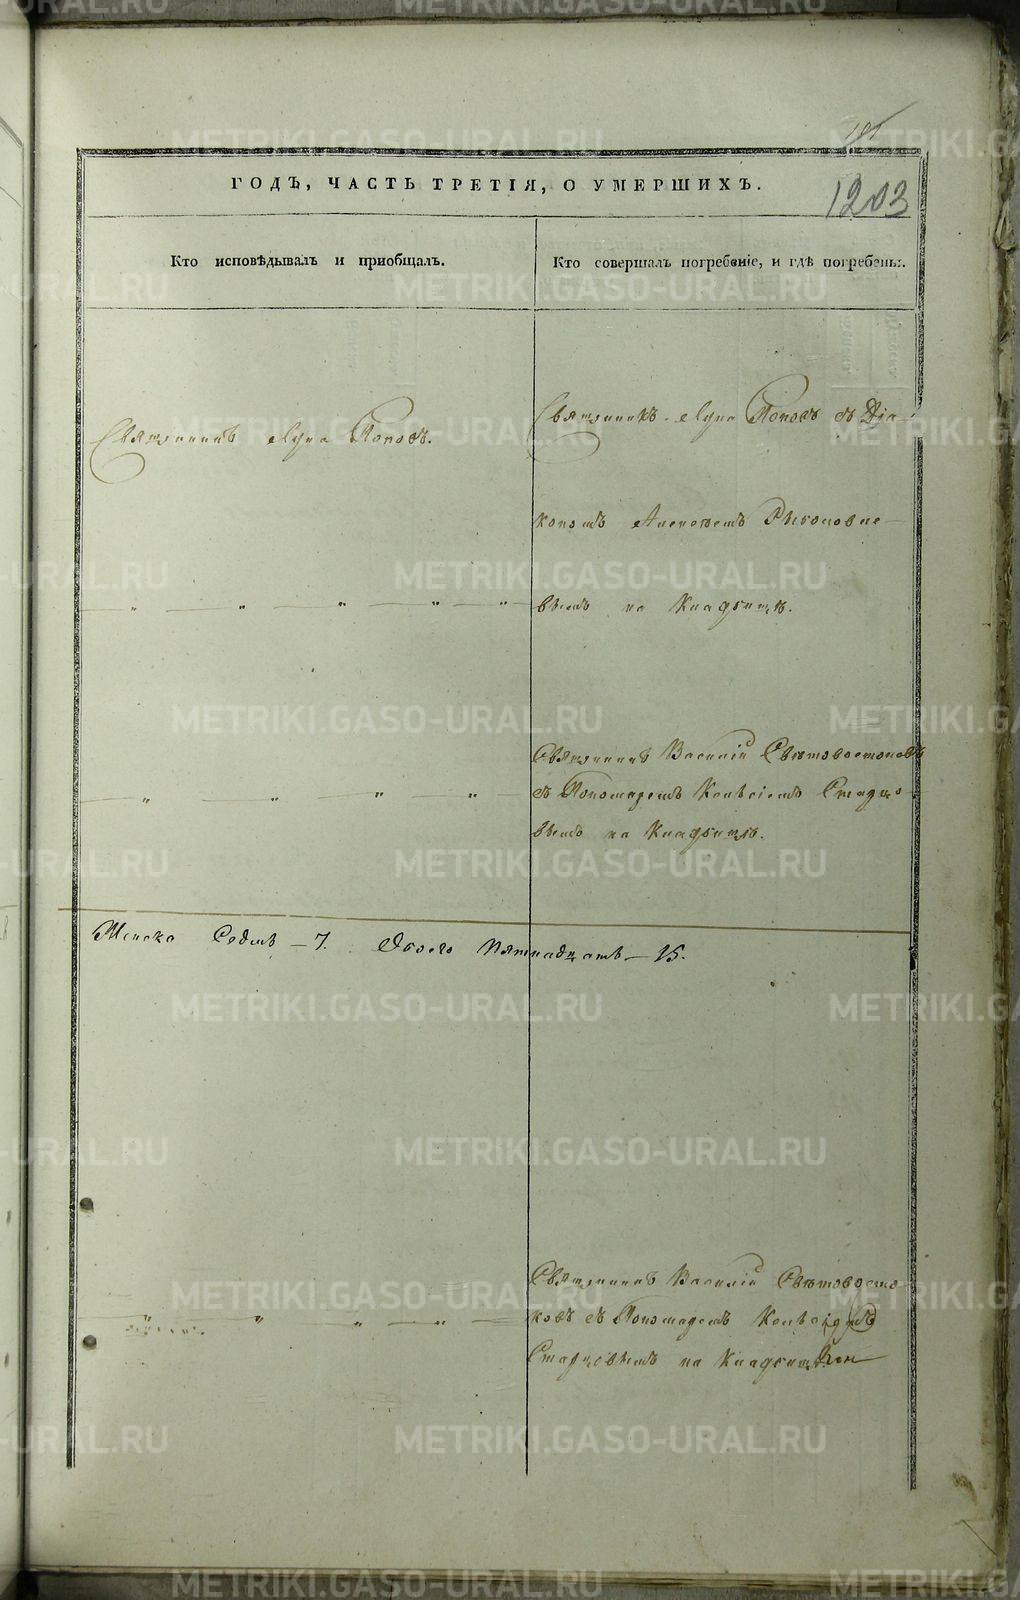 1203
ГОДЪ, ЧАСТЬ ТРЕТІЯ, О УМЕРШИХЪ.
Кто исповѣдывалъ и пріобщалъ.
Кто совершалъ погребеніе, и гдѣ погребены.
Священникъ Попов.
Священникъ Поповъ съ Діа-
кономъ Алексѣемъ
вымъ на Кладбищѣ.
Священникъ Василій Свѣтовостоковъ
съ Пономаремъ Старцо-
вымъ на Кладбищѣ.
Женска Седмь – 7. Обоего Пятнадцать – 15.
Священникъ Василій Свѣтовосто-
ковъ съ Пономаремъ
Старцовымъ на Кладбищѣ
METRIKI.GASO-URAL.RU